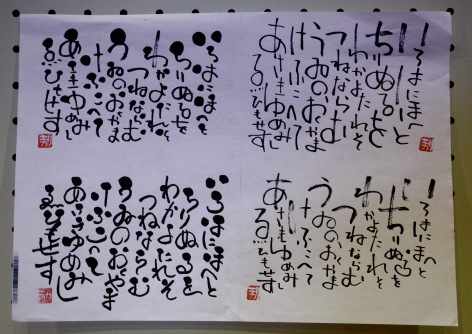 いろはにほへと
ちりぬるを
わかよたれそ
つねならむ
うゐのおくやま
けふこへて
あさきゆめみし
ゑひもせす
いろはにほへと
ちりぬるを
わかよたれそ
つねならむ
うゐのおくやま
けふこへて
あさきゆめみし
ゑひもせす
いろはにほへと
ちりぬるを
わかよたれそ
つねならむ
うゐのおくやま
けふこへて
あさきゆめみし
ゑひもせす
いろはにほへと
ちりぬるを
わかよたれそ
つねならむ
うゐのおくやま
けふこへて
あさきゆめみし
ゑひもせす